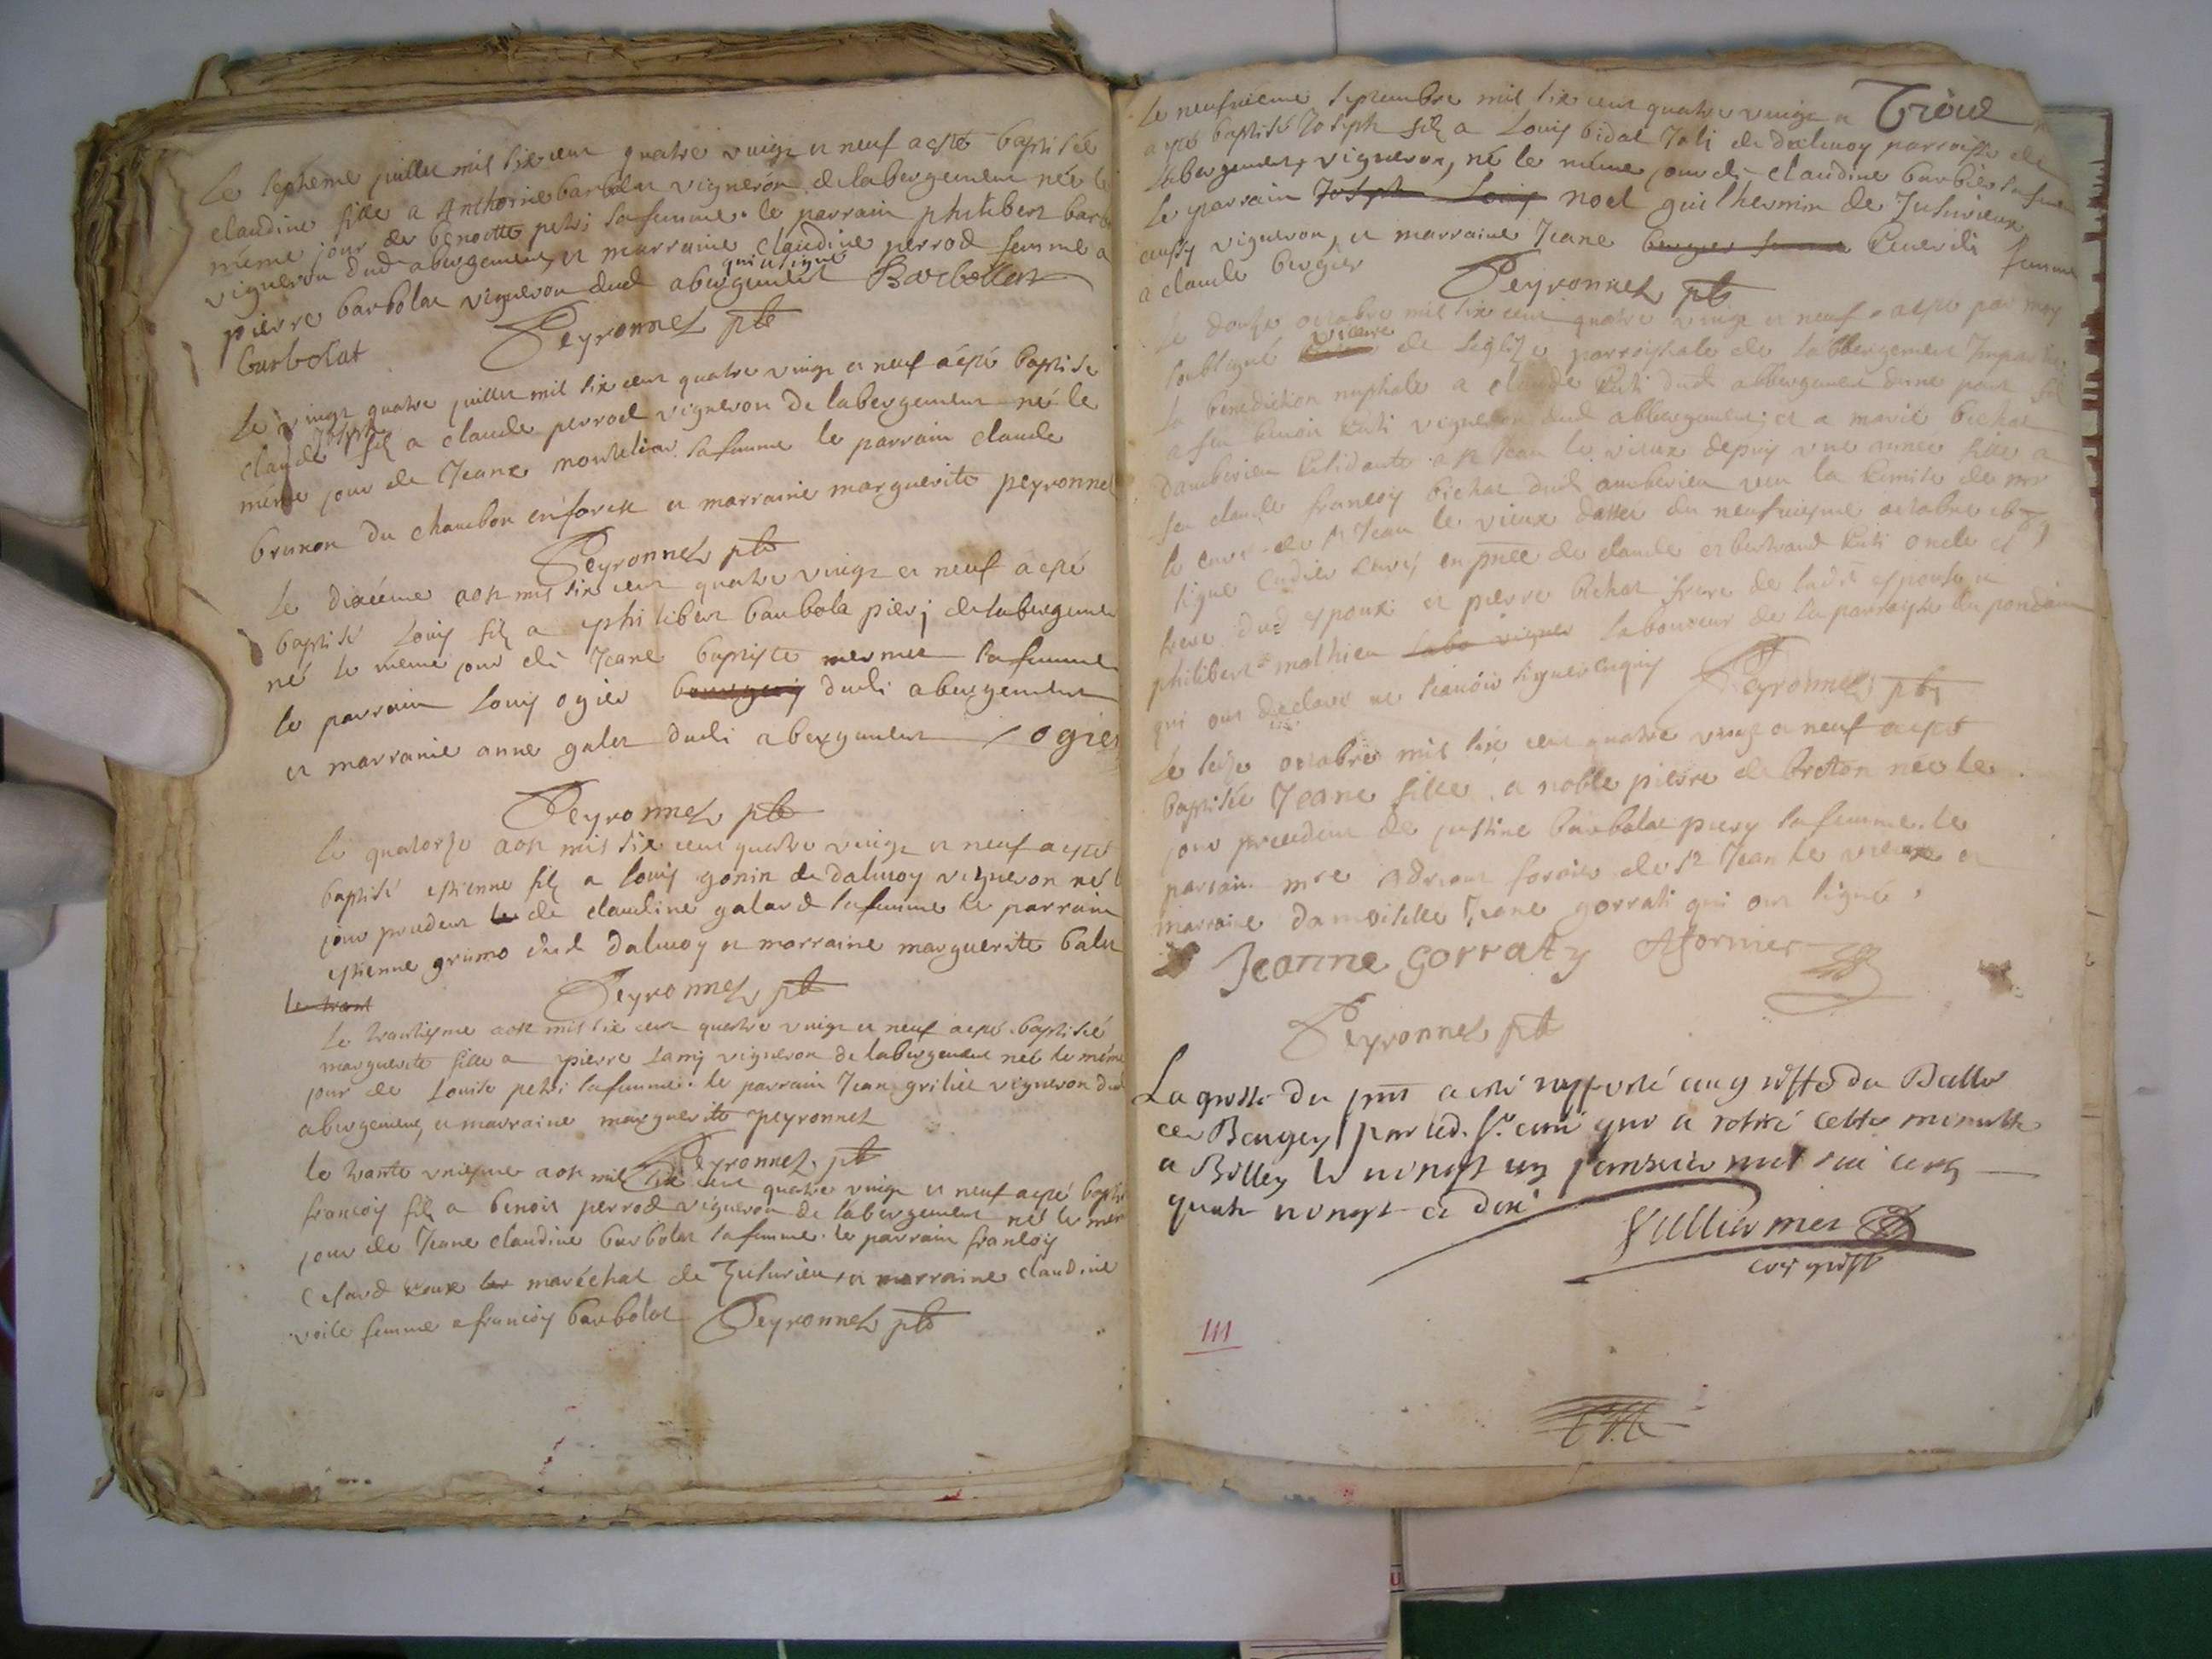 Le septiéme juillet mil six cent quatre vingt et neuf a esté baptisée
claudine fille a Anthoine barbolat vigneron de labergement née le
méme jour de benoitte petit sa femme. le parrain philibert barbo
vigneron dud abergement, et marraine claudine perrod femme a
qui a signé
pierre barbolat vigneron dud abergement Barbollat
barbolat Peyronnet pbr
Le vingt quatre juillet mil six cent quatre vingt et neuf a esté baptise
Joseph
claude fils a claude perrod vigneron de labergement né le
méme jour de Jeane sa femme le parrain claude
brunon du chambon en forest et marraine marguerite peyronnet
Peyronnet pbr
Le dixiéme aost mil six cent quatre vingt et neuf a esté
baptisé Louis fils a philibert barbola de labergement
né le méme jour de Jeane baptiste mermet sa femme
le parrain Louis ogier dudi abergement
et marraine anne galet dudi abergement / ogier
Peyronnet pbr
le quatorze aost mil six cent quatre vingt et neuf a esté
baptisé estienne fils a louis gonin de dalivoy vigneron né le
jour precedent de claudine galard sa femme le parrain
estienne grumo dud dalivoy et marraine marguerite balet
le trant Peyronnet pbr
Le trantiesme aost mil six cent quatre vingt et neuf a esté baptisée
marguerite fille a pierre Lamy vigneron de labergement née le méme
jour de Louise petit sa femme. le parrain Jean grilliet vigneron dud
abergement, et marraine marguerite peyronnet
Peyronnet pbr
le trante uniesme aost mil six cent quatre vingt et neuf a esté baptisé
francois fils a benoit perrod vigneron de labergement né le mem
jour de Jeane claudine barbolat sa femme. le parrain francois
maréchal de Jusurieu, et marraine claudine
voile femme a francois barbolat Peyronnet pbr
Le neufvieme septembre mil six cent quatre vingt et neuf
a esté baptisé Joseph fils a Louis bidal de dalivoy parroisse de
labergement, vigneron, né le méme jour de claudine barbier sa femme
Le parrain Joseph Louis noel guilhermin de Jusurieux
aussy vigneron, et marraine Jeane femme
a claude bergier Peyronnet pbr
Le douze octobre mil six cent quatre vingt et neuf a esté par moy
vicaire
soubsigné de leglise parroissiale de labbergement Impartie
la benediction nuptiale a claude dud abbergement dune part fils
a feu benoit vigneron dud abbergement; et a marie bichat
dambérieu residante a st Jean le vieux depuis une année fille a
feu claude francois bichat dud amberieu veu la remise de mr
le curé de st Jean le vieux dattée du neufviesme octobre 1689
signé curé, en pnce de claude et bertrand oncle et
frere dud espoux et pierre bichat frere de ladte espouse, et
philibert mathieu laboureur de la parroisse du pondain
qui ont declaré ne scavoir signer enquis Peyronnet pbr
Le seize octobre mil six cent quatre vingt et neuf a esté
baptisée Jeane fille a noble pierre de breton née le
jour precedent de justine barbolat sa femme. le
parrain mre Adrient fornier de st Jean le vieux et
marraine damoiselle Jeane gorrati qui ont signé.
Jeanne Gorraty Afornier
Peyronnet pbr
La grosse du pnt a esté rapporté au greffe du Balliage
de Bougey par led. sr curé qui a retiré cette minutte
a Belley le vingt un janvier mil six cent
quatre vingt et dix
Vulliermet
111